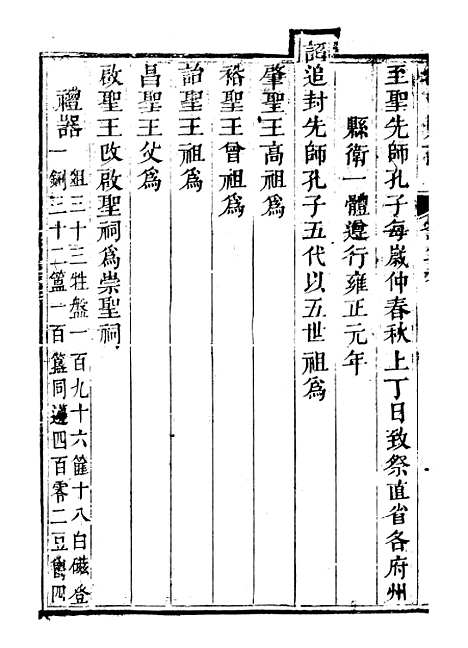 至聖先師孔子每歲仲春秋上丁日致祭直省各府州
縣衛一體遵行雍正元年
詔追封先師孔子五代以五世祖為
肇聖王高祖為
裕聖王曾祖為
詒聖王祖為
昌聖王父為
啟聖王改啟聖祠為崇聖祠
禮器
俎三十三牲盤一百九十六篚十八白磁登
一鉶三十二簠一百簋同籩四百零二豆四